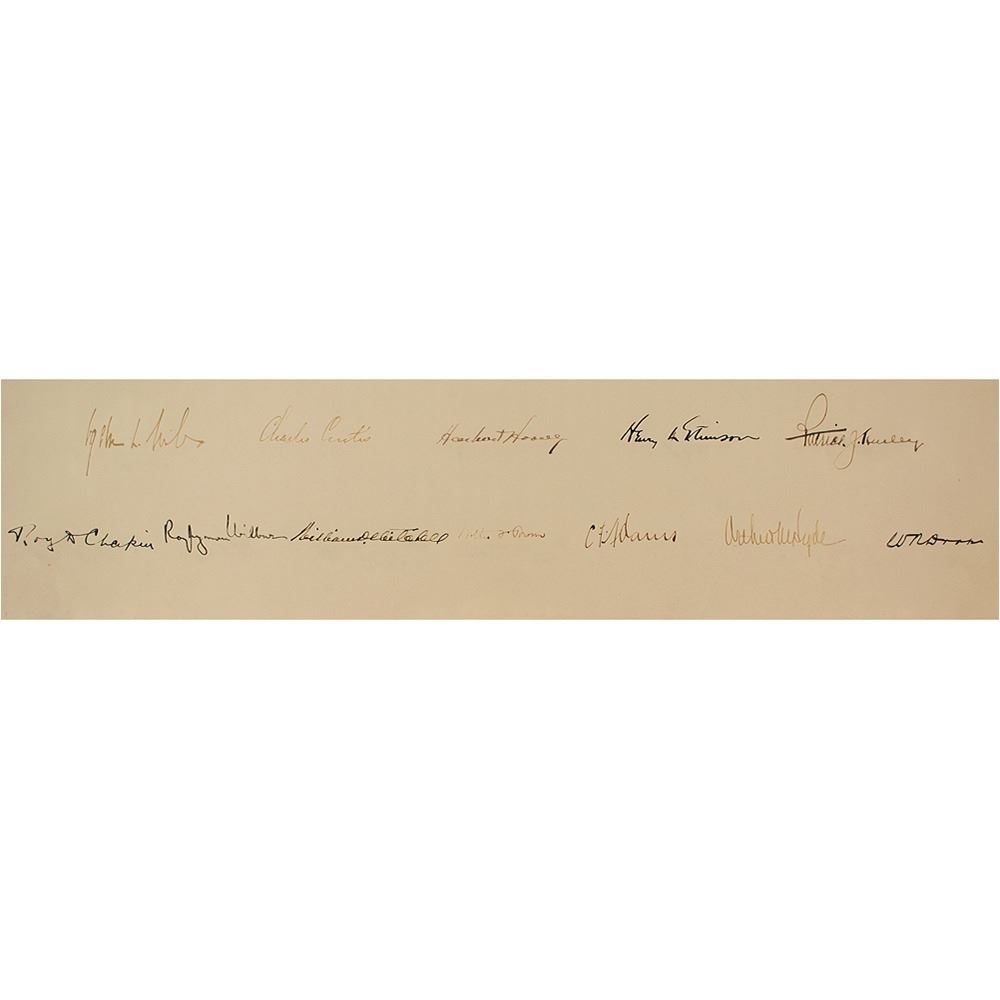 Ogden L. Mills Charles Curtis Herbert Hoover Henry L Stimson Patrick J. Hurley
Roy D Chapin Ray Lyman Wilbur William D. Mitchell Walter F Brown C F Adams Arthur M Hyde W N Doak